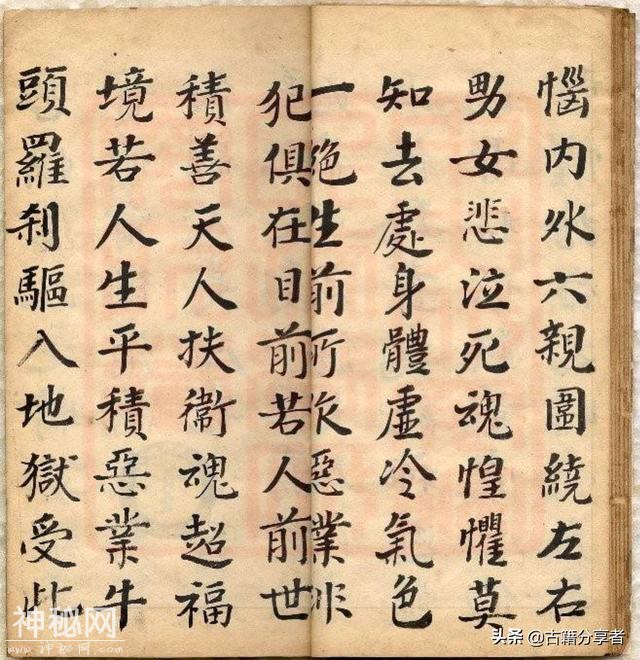 惱内外六親圍繞左右
男女悲泣死魂惶懼莫
知去處身體虛冷氣色
一絶生前所欠惡業非
犯俱在目前若人前世
積善天人扶衛魂超福
境若人生平積惡業牛
頭羅刹驅入地獄受此
神秘网
www.神秘网.com
头条 @古籍分享者